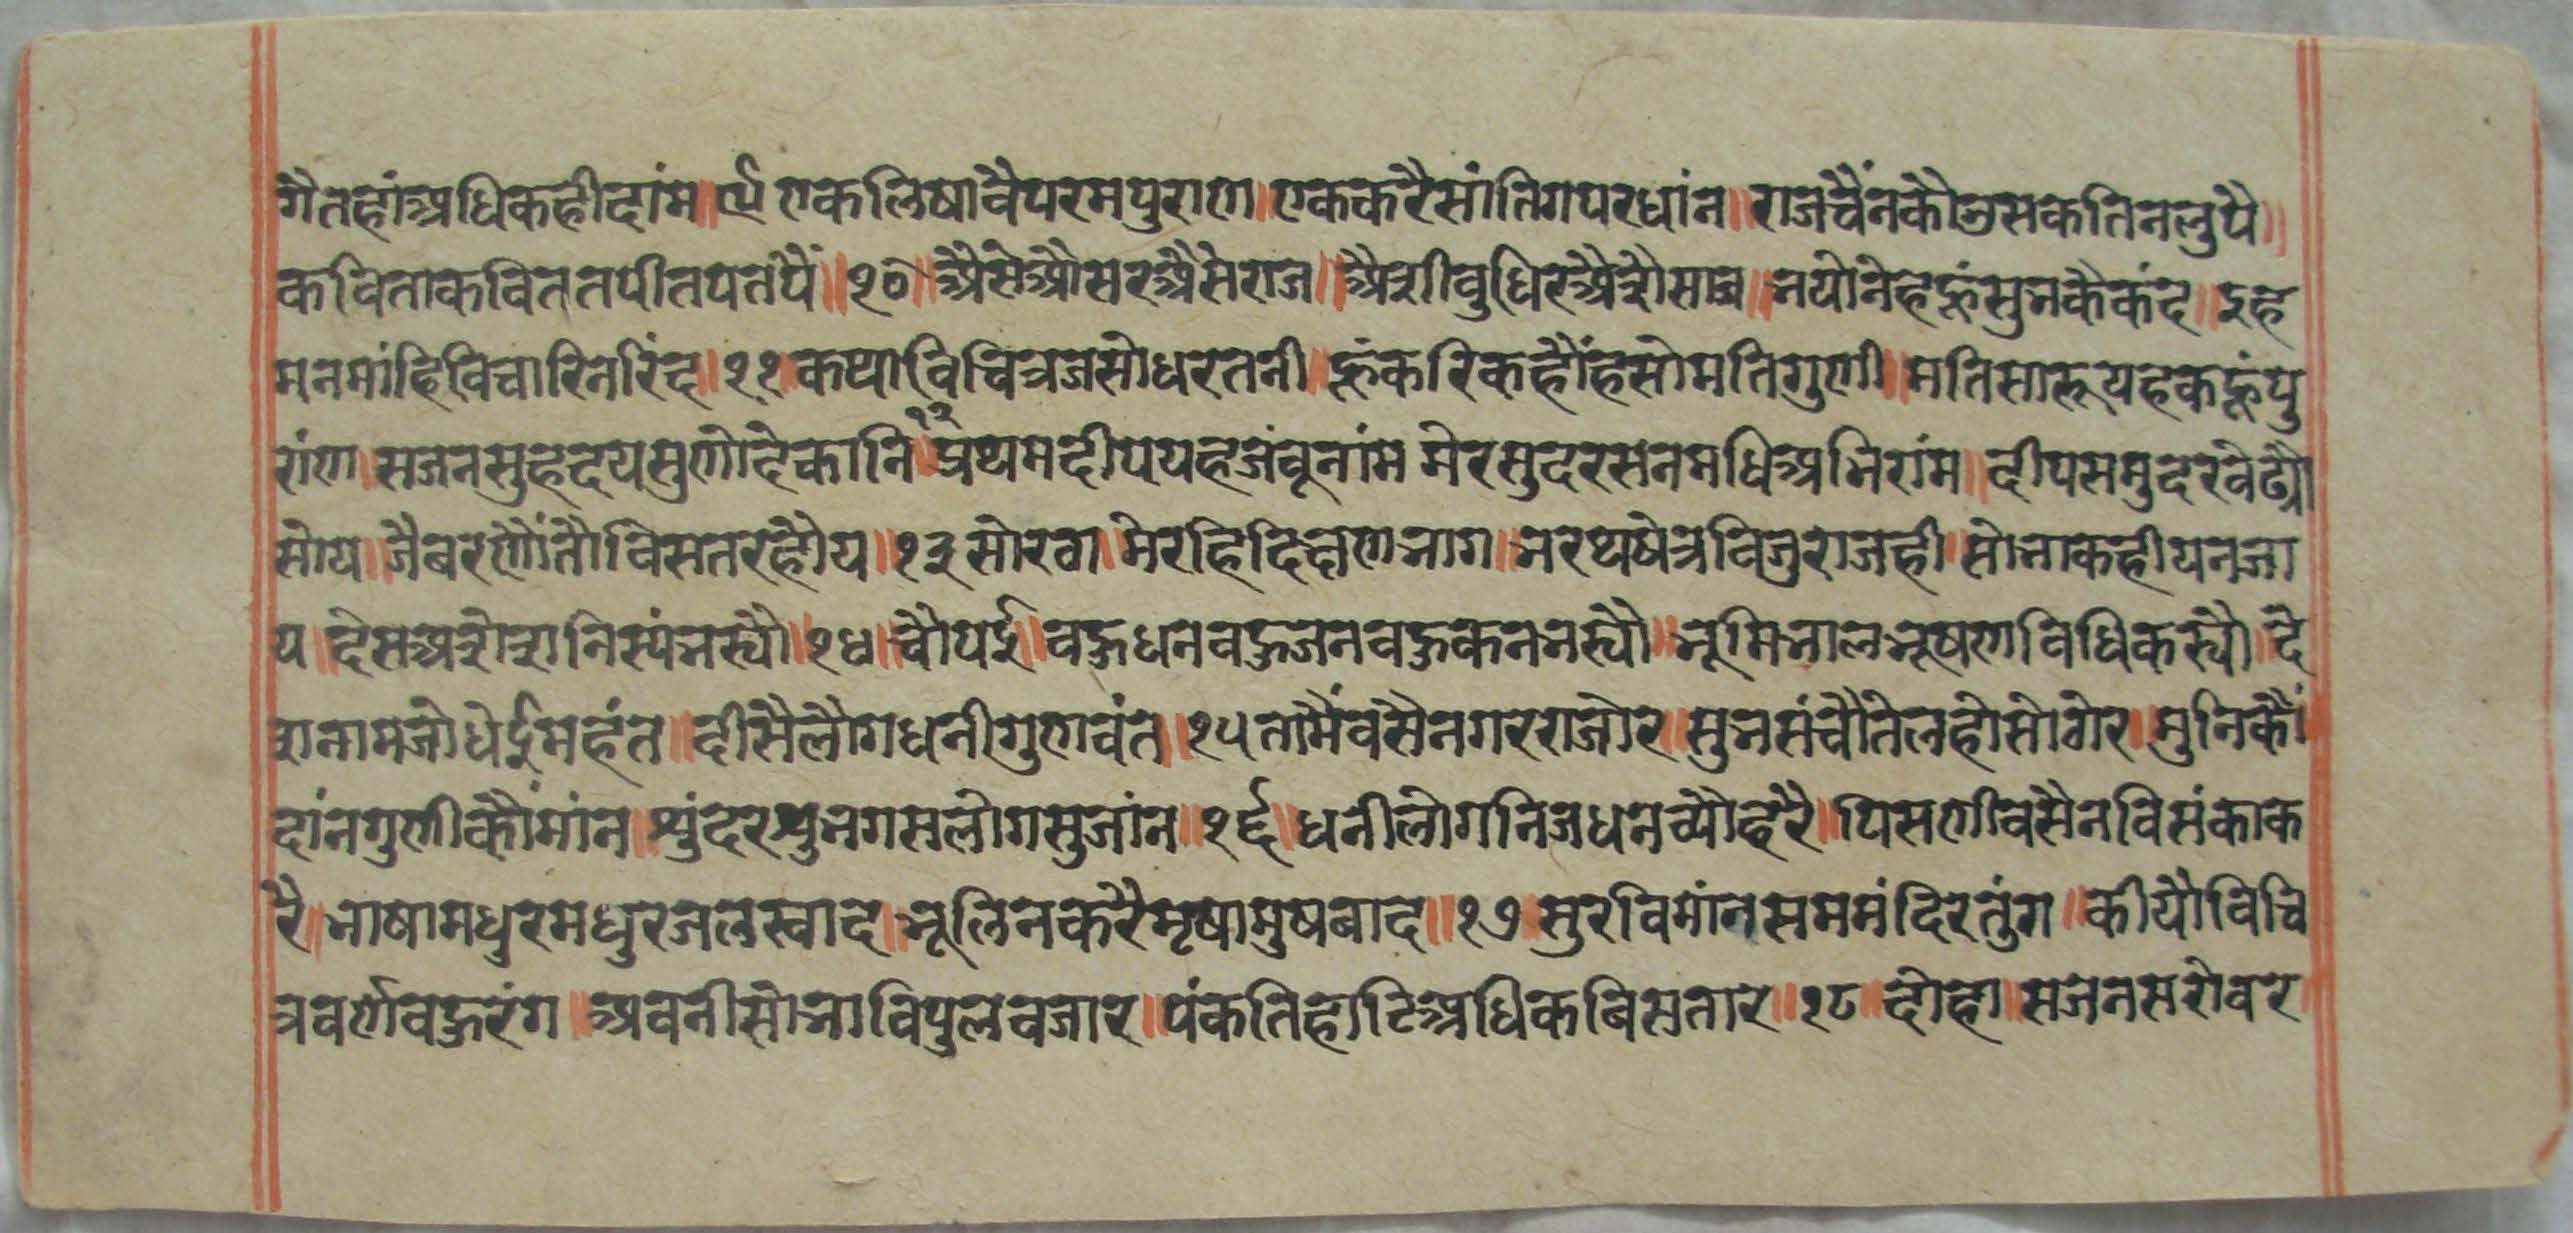 गैतहांअधिकहीदांम॥९॥एकलिषावैपरमपुराण॥एककरैसांतिगपरधांन॥राजचैंनकौउसकतिनलुपै॥
कविताकवितततपीतपतंपैं॥१०॥अैसेऔसरअैसेराज॥अैशीबुधिरअैशेसाज॥भयोनेहहूंसुभकैकंद॥इह
मनमांहिविचारिनरिंद॥११॥कथाविचित्रजसोधरतनी॥हूंकरिकहौंहंसोमतिगुणी॥मतिसारूयहकहूंपु
रांण॥सजनसुह्रदयसुणौदेकानि॥१२॥प्रथमदीपयहजंबूनांम॥मेरसुदरसनमधिअभिरांम॥दीपसमुदरवेढ्यौ
सोय॥जैबरणौंतौविसतरहौय॥१३॥सोरठा॥मेरहिदिक्षणभाग॥भरथषेत्रविजुराजही॥सोभाकहीयनजा
य॥देसअशेशनिस्यंभस्यौ॥१४॥चौपई॥बहुधनबहुजनबहुकनभस्यौ॥भूमिभालभूषणविधिकस्यौ॥दे
शनामजोधेईमहंत॥दीसैलौगधनीगुणवंत॥१५॥तामैंबसैनगरराजोर॥सुभसंचौतेलहोसोठोर॥मुनिकौं
दांनगुणीकौंमांन॥श्रुंदरश्रुभगसलोगसुजांन॥१६॥धनीलोगनिजधनब्यौहरै॥पिसणीवसैनविसंकाक
रै॥भाषामधुरमधुरजलस्वाद॥भूलिनकरैमृषामुषबाद॥१७॥सुरविमांनसममंदिरतुंग॥कीयौविचि
त्रवर्णबहुरंग॥अवनीसोभाविपुलबजार॥पंकतिहाटिअधिकबिसतार॥१८॥दोहा॥सजनसरोवर